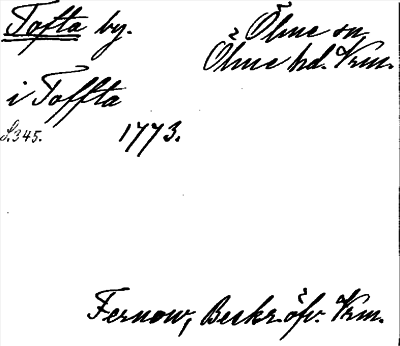 Tofta by.
Ölme sn
Ölme hd. Vrm.
i Toffta
S.345.
1773.
Fernow, Beskr. öfv. Vrm.